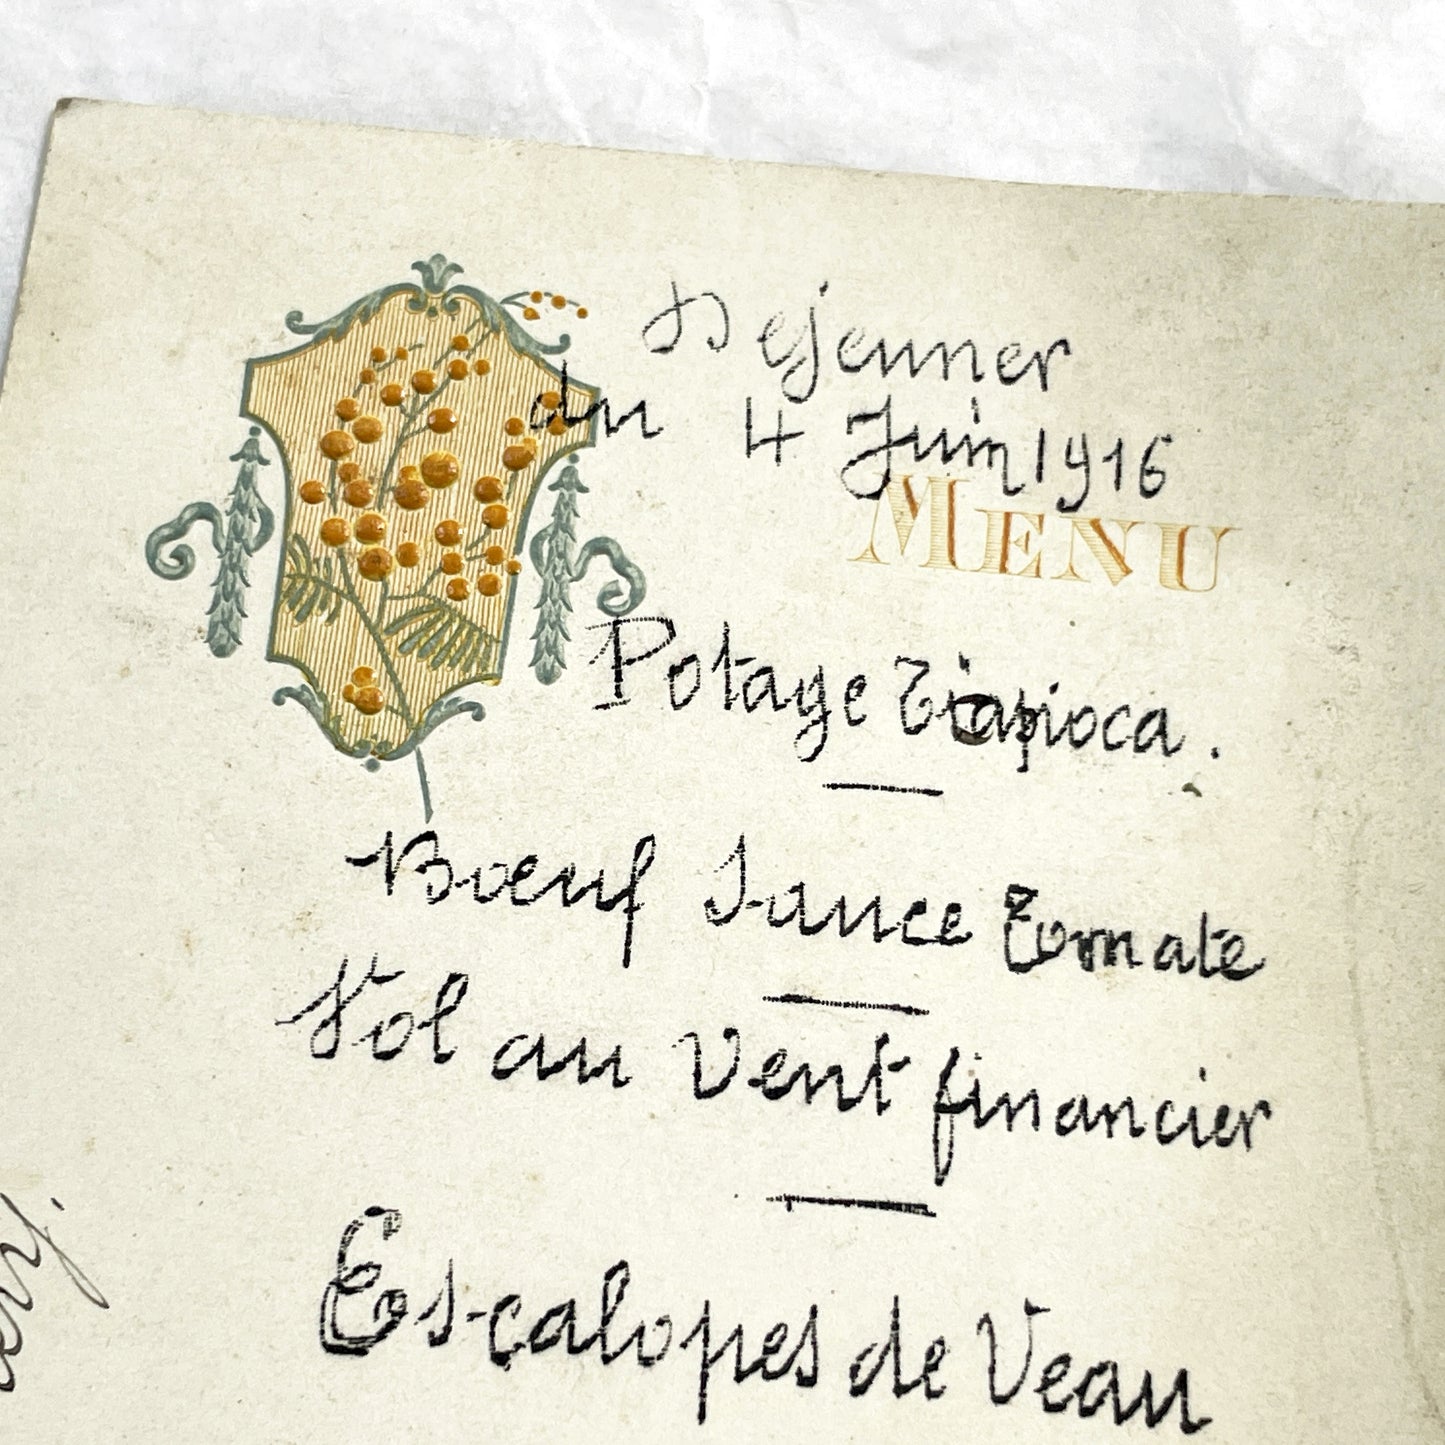 Dejeuner
du 4 Juin 1916
MENU
Potage Tiapioca.
Bœuf Sauce Tomate
Vol au Vent financier
Escalopes de Veau